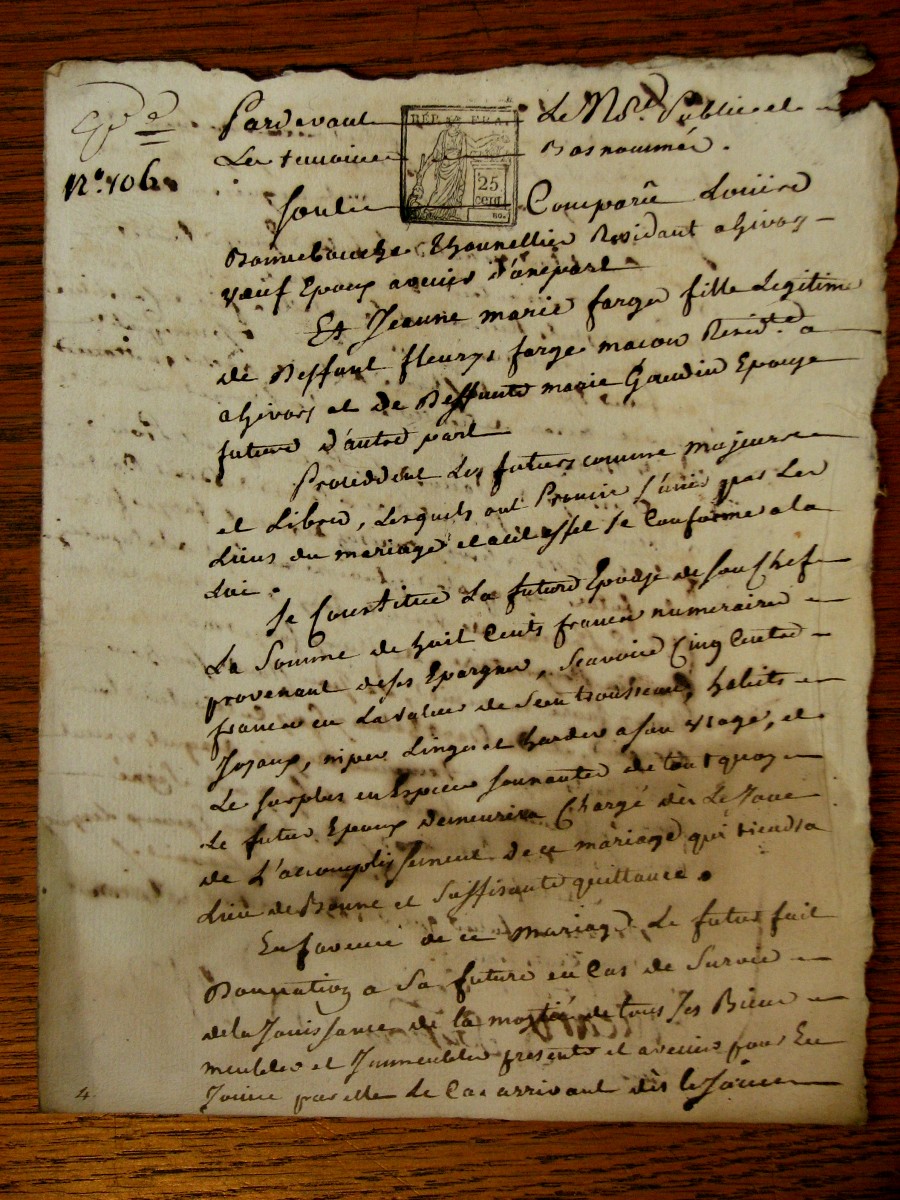 Exp.on
N.o 106.
Pardevant Le No.re Public et
Les temoins Basnommés.
RÉP. FRA.
25
cent.
Sont Comparû Louis
Bonnebouche Chanellier Residant a Givors
veuf Epoux avenir d'unepart
Et Jeanne marie farge fille Legitime
de Deffunt fleury farge macon Resid.t a
a Givors et de Deffunte marie Gaudin Epouse
future d'autre part
Procedent Les futurs comme majeurs
et Libres, Lesquels ont Promis s'unir par Les
Liens du mariage et acet effet se Conformer a la
Loi.
Se Constitue La future Epouse de son Chef
La Somme de huit Cents francs numeraire
provenant de ses Epargnes, Scavoir Cinq Cents
francs en La valeur de Son trousseau, habits
Joyaux, nipes Linges et hardes a son usage, et
Le surplus en Espèces sonnantes de tout quoy
Le futur Epoux demeurera Chargé dès Le Jour
de L'accomplissement de ce mariage qui tiendra
Lieu de Bonne et Suffisante quittance.
En faveur de ce mariage Le futur fait
Donnation a Sa future en Cas de Survie
de la Jouissance de la moitié de tous Ses Biens
meubles et Immeubles presents et avenir pour En
Jouir par elle Le Cas arrivant dès le Jour
4